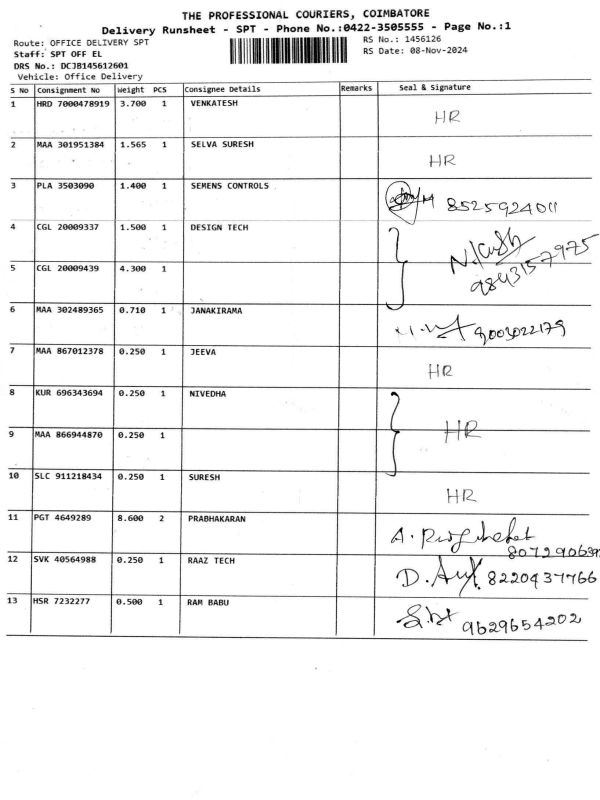 THE PROFESSIONAL COURIERS, COIMBATORE
Delivery Runsheet - SPT - Phone No.:0422-3505555 - Page No.:1
Route: OFFICE DELIVERY SPT
RS No.: 1456126
Staff: SPT OFF EL
RS Date: 08-Nov-2024
DRS No.: DCJB145612601
Vehicle: Office Delivery
S No Consignment No Weight PCS Consignee Details Remarks Seal & Signature
1 HRD 7000478919 3.700 1 VENKATESH HR
2 MAA 301951384 1.565 1 SELVA SURESH HR
3 PLA 3503090 1.400 1 SEMENS CONTROLS 8525924011
4 CGL 20009337 1.500 1 DESIGN TECH
9843157975
5 CGL 20009439 4.300 1
6 MAA 302489365 0.710 1 JANAKIRAMA 9003022179
7 MAA 867012378 0.250 1 JEEVA HR
8 KUR 696343694 0.250 1 NIVEDHA
HR
9 MAA 866944870 0.250 1
10 SLC 911218434 0.250 1 SURESH HR
11 PGT 4649289 8.600 2 PRABHAKARAN A.
12 SVK 40564988 0.250 1 RAAZ TECH D. 8220437766
13 HSR 7232277 0.500 1 RAM BABU 9629654202